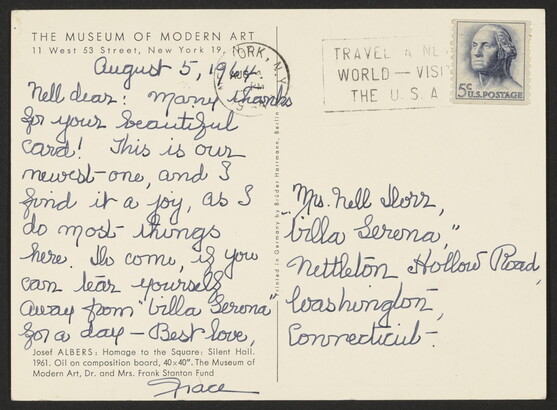 THE MUSEUM OF MODERN ART
11 West 53 Street, New York 19,
August 5, 1964
Nell dear: Many thanks
for your beautiful
card! This is our
newest one, and I
find it a joy, as I
do most things
here. Do come, if you
can tear yourself
away from "Villa Serona"
for a day — Best love,
Grace
Josef ALBERS: Homage to the Square: Silent Hall.
1961. Oil on composition board, 40×40". The Museum of
Modern Art, Dr. and Mrs. Frank Stanton Fund
Printed in Germany by Brüder Hartmann, Berlin
YORK, N.Y.
TRAVEL A NE
WORLD — VISI
THE U.S.A
5¢ U.S. POSTAGE
Mrs. Nell Dorr,
"Villa Serona,"
Nettleton Hollow Road,
Washington,
Connecticut.